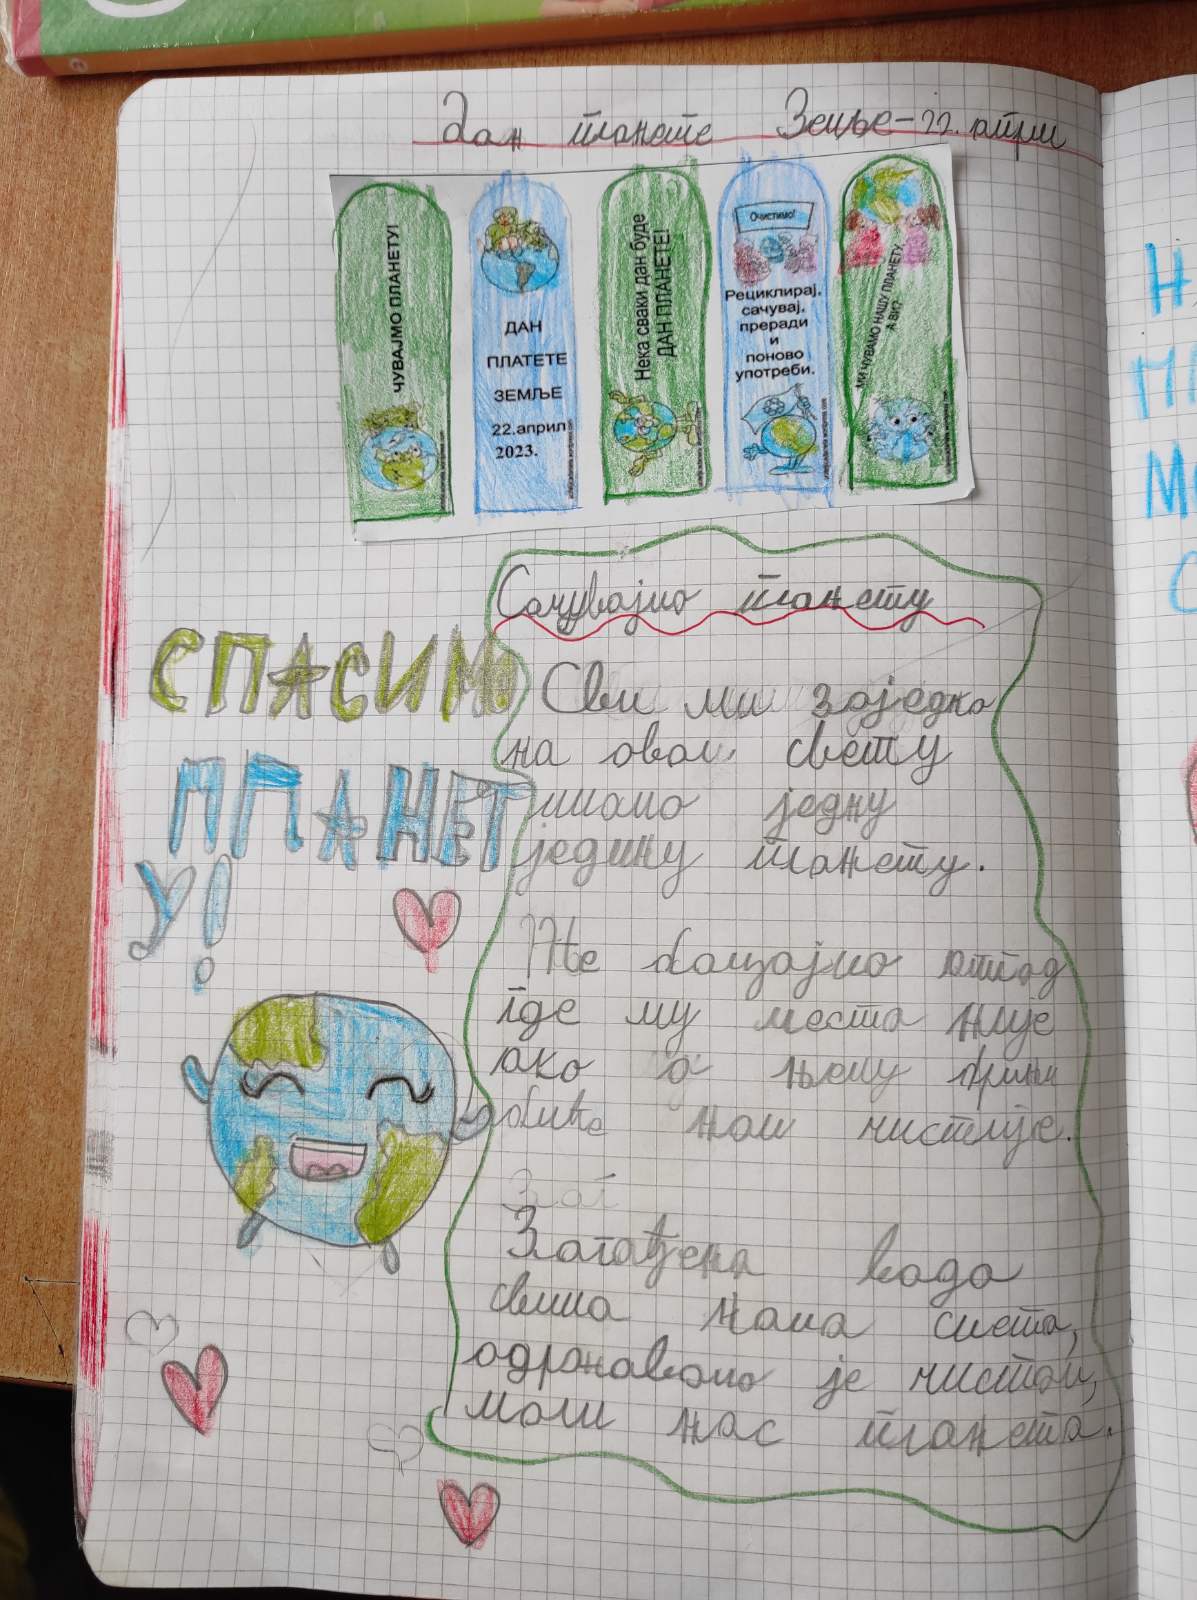 Дан планете Земље - 22. апри
ЧУВАЈМО ПЛАНЕТУ!
ДАН
ПЛАТЕТЕ
ЗЕМЉЕ
22.април
2023.
Нека сваки дан буде
ДАН ПЛАНЕТЕ!
Очистимо!
Рециклирај,
сачувај,
преради
и
поново
употреби.
МИ ЧУВАМО НАШУ ПЛАНЕТУ
А ВИ?
Сачувајмо планету
СПАСИМО
ППАНЕТ
У!
Сви ми заједно
на овом свету
имамо једну
једину планету.
Не бацајмо отпад
где му места није
ако о њему
биће нам чистије.
Заг
Загађена вода
свима нама смета,
одржавамо је чистом,
моли нас планета.